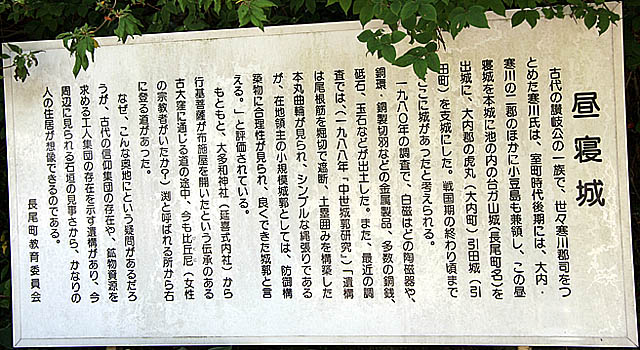 昼寝城
古代の讃岐公の一族で、世々寒川郡司をつ
とめた寒川氏は、室町時代後期には、大内・
寒川の二郡のほかに小豆島も兼領し、この昼
寝城を本城に池の内の台が山城(長尾町名)を
出城に、大内郡の虎丸(大内町)引田城(引
田町)を支城にした。戦国期の終わり頃まで
ここに城があったと考えられる。
一九八〇年の調査で、白磁ほどの陶磁器や、
銅環・銅製切羽などの金属製品、多数の銅銭、
砥石、玉石などが出土した。また、最近の調
査では、(一九八八年・中世城郭研究)「遺構
は尾根筋を堀切で遮断、土塁囲みを構築した
本丸曲輪が見られ、シンプルな縄張りである
が、在地領主の小規模城郭としては、防御構
築物に合理性が見られ、良くできた城郭と言
える。」と評価されている。
もともと、大多和神社(延喜式内社)から
行基菩薩が布施屋を開いたという伝承のある
古大窪に通じる道の途中、今も比丘尼(女性
の宗教者がいたか?)渕と呼ばれる所から右
に登る道があった。
なぜ、こんな奥地にという疑問があるだろ
うが、古代の信仰集団の存在や、鉱物資源を
求める工人集団の存在を示す遺構があり、今
周辺に見られる石垣の見事さから、かなりの
人の住居が想像できるのである。
長尾町教育委員会